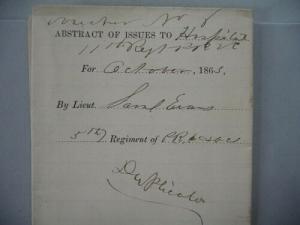 Number No. 8
ABSTRACT OF ISSUES TO Hospital
11th Regt
For October, 1863,
By Lieut. Saml Evans
5th Regiment of
Duplicate